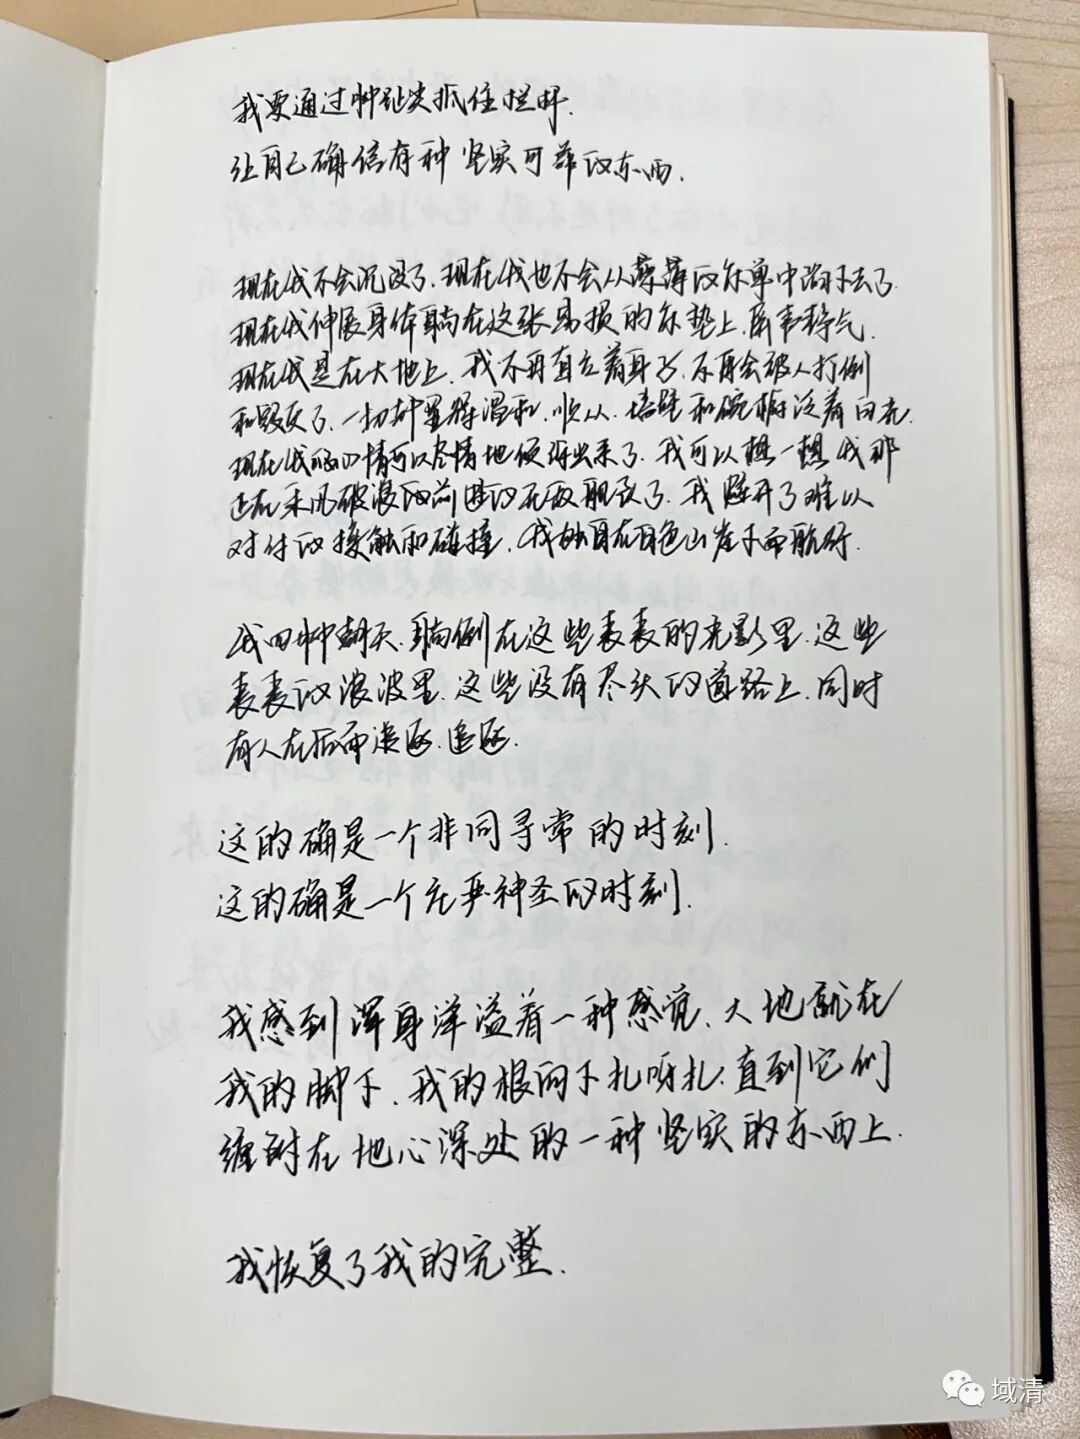 我要通过脚趾尖抓住栏杆.
让自己确信有种坚实可靠的东西.
现在我不会沉没了.现在我也不会从薄薄的床单中陷下去了.
现在我伸展身体躺在这张易损的床垫上.屏声静气.
现在我是在大地上.我不再直立着身子.不再会被人打倒
和毁灭了.一切都显得温和.顺从.墙壁和碗橱泛着白光.
现在我的心情可以尽情地倾泻出来了.我可以想一想我那
正在乘风破浪的前进的无敌舰队了.我躲开了难以
对付的接触和碰撞.我独自在白色山崖下面航行.
我四脚朝天.躺倒在这些长长的光影里.这些
长长的浪波里.这些没有尽头的道路上.同时
有人在后面追逐.追逐.
这的确是一个非同寻常的时刻.
这的确是一个庄严神圣的时刻.
我感到浑身洋溢着一种感觉.大地就在
我的脚下.我的根向下扎呀扎.直到它们
缠附在地心深处的一种坚实的东西上.
我恢复了我的完整.
域清